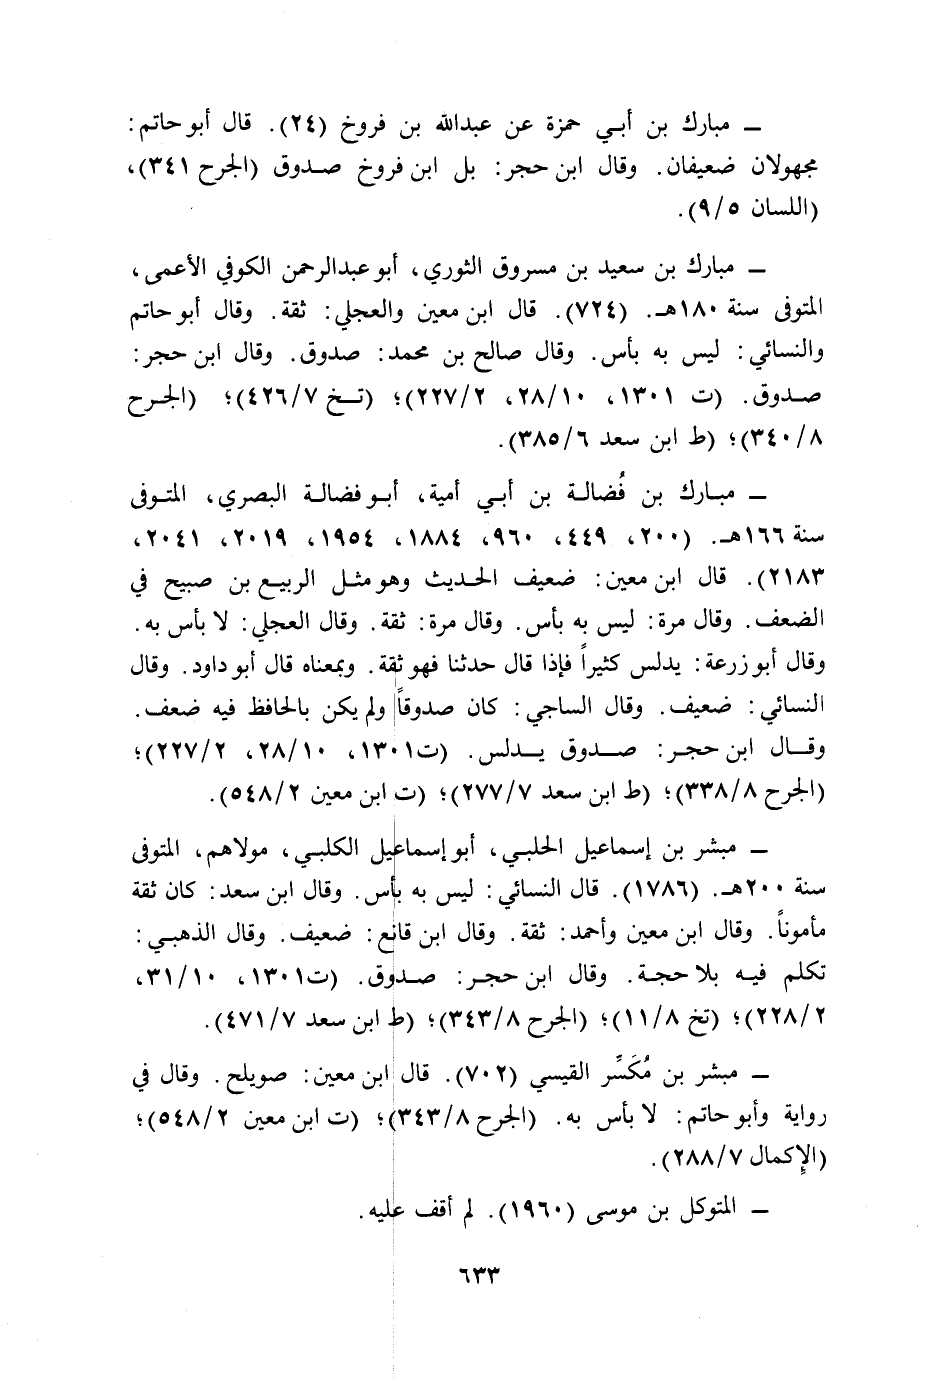 ــ مبارك بن أبي حمزة عن عبدالله بن فروخ (٢٤). قال أبو حاتم:
مجهولان ضعيفان. وقال ابن حجر: بل ابن فروخ صدوق (الجرح ٣٤١)،
(اللسان ٩/٥).
ــ مبارك بن سعيد بن مسروق الثوري، أبو عبدالرحمن الكوفي الأعمى،
المتوفى سنة ١٨٠هـ. (٧٢٤). قال ابن معين والعجلي: ثقة. وقال أبو حاتم
والنسائي: ليس به بأس. وقال صالح بن محمد: صدوق. وقال ابن حجر:
صدوق. (ت ١٣٠١، ٢٨/١٠، ٢٢٧/٢)؛ (تخ ٤٢٦/٧)؛ (الجرح
٣٤٠/٨)؛ (ط ابن سعد ٣٨٥/٦).
ــ مبارك بن فُضالة بن أبي أمية، أبو فضالة البصري، المتوفى
سنة ١٦٦هـ. (٢٠٠، ٤٤٩، ٩٦٠، ١٨٨٤، ١٩٥٤، ٢٠١٩، ٢٠٤١،
٢١٨٣). قال ابن معين: ضعيف الحديث وهو مثل الربيع بن صبيح في
الضعف. وقال مرة: ليس به بأس. وقال مرة: ثقة. وقال العجلي: لا بأس به.
وقال أبو زرعة: يدلس كثيراً فإذا قال حدثنا فهو ثقة. وبمعناه قال أبو داود. وقال
النسائي: ضعيف. وقال الساجي: كان صدوقاً ولم يكن بالحافظ فيه ضعف.
وقال ابن حجر: صدوق يدلس. (ت١٣٠١، ٢٨/١٠، ٢٢٧/٢)؛
(الجرح ٣٣٨/٨)؛ (ط ابن سعد ٢٧٧/٧)؛ (ت ابن معين ٥٤٨/٢).
ــ مبشر بن إسماعيل الحلبي، أبو إسماعيل الكلبي، مولاهم، المتوفى
سنة ٢٠٠هـ. (١٧٨٦). قال النسائي: ليس به بأس. وقال ابن سعد: كان ثقة
مأموناً. وقال ابن معين وأحمد: ثقة. وقال ابن قانع: ضعيف. وقال الذهبي:
تكلم فيه بلا حجة. وقال ابن حجر: صدوق. (ت١٣٠١، ٣١/١٠،
٢٢٨/٢)؛ (تخ ١١/٨)؛ (الجرح ٣٤٣/٨)؛ (ط ابن سعد ٤٧١/٧).
ــ مبشر بن مُكَسِّر القيسي (٧٠٢). قال ابن معين: صويلح. وقال في
رواية وأبو حاتم: لا بأس به. (الجرح ٣٤٣/٨)؛ (ت ابن معين ٥٤٨/٢)؛
(الإكمال ٢٨٨/٧).
ــ المتوكل بن موسى (١٩٦٠). لم أقف عليه.
٦٣٣